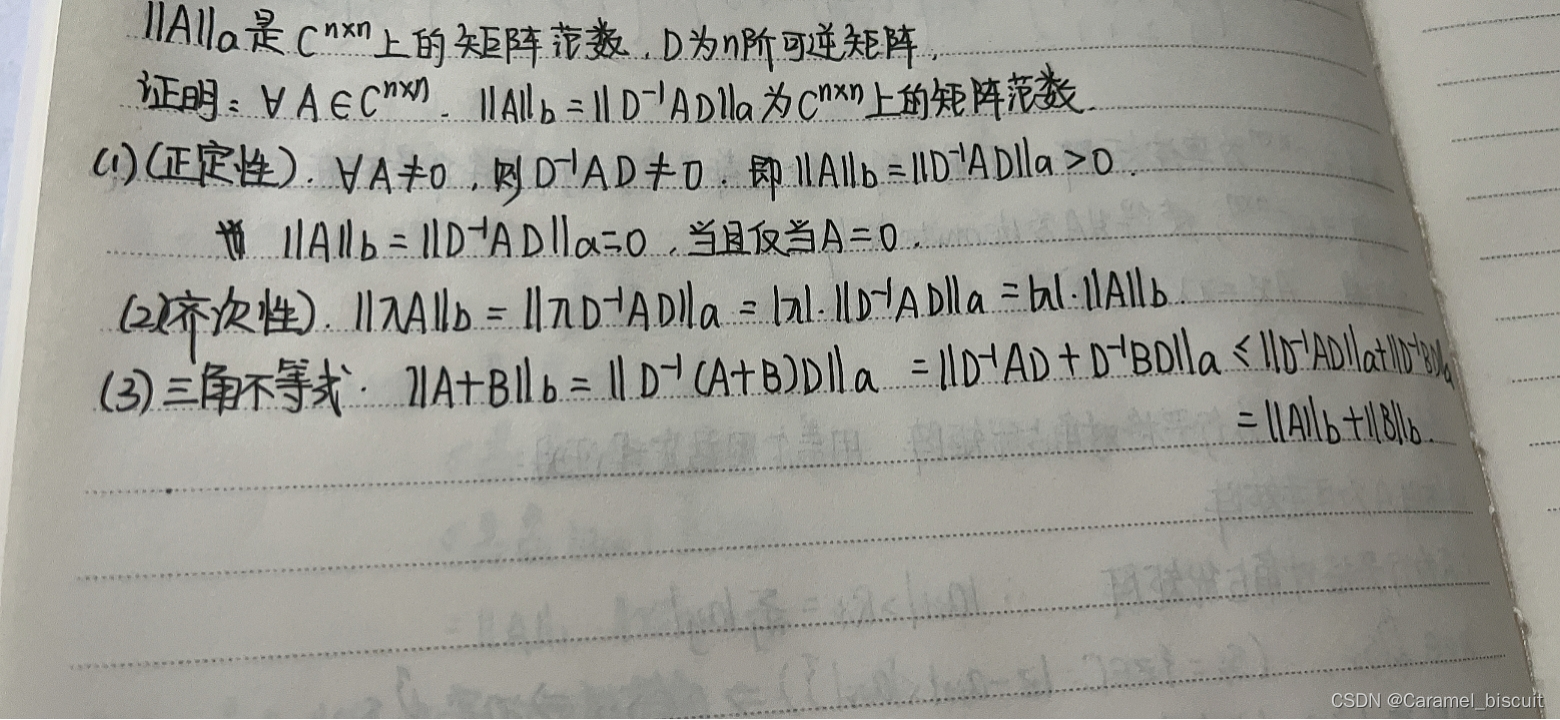 ||A||a是 C^{n×n}上的矩阵范数. D为n阶可逆矩阵.
证明: ∀ A∈C^{n×n}. ||A||b = ||D⁻¹AD||a 为C^{n×n}上的矩阵范数.
(1) (正定性). ∀A≠0, 则D⁻¹AD≠0. 即||A||b=||D⁻¹AD||a>0.
||A||b = ||D⁻¹AD||a=0, 当且仅当A=0.
(2)(齐次性). ||λA||b = ||λD⁻¹AD||a = |λ|·||D⁻¹AD||a = |λ|·||A||b.
(3) 三角不等式. ||A+B||b = ||D⁻¹(A+B)D||a = ||D⁻¹AD + D⁻¹BD||a ≤ ||D⁻¹AD||a+||D⁻¹BD||a
= ||A||b+||B||b.
CSDN @Caramel_biscuit